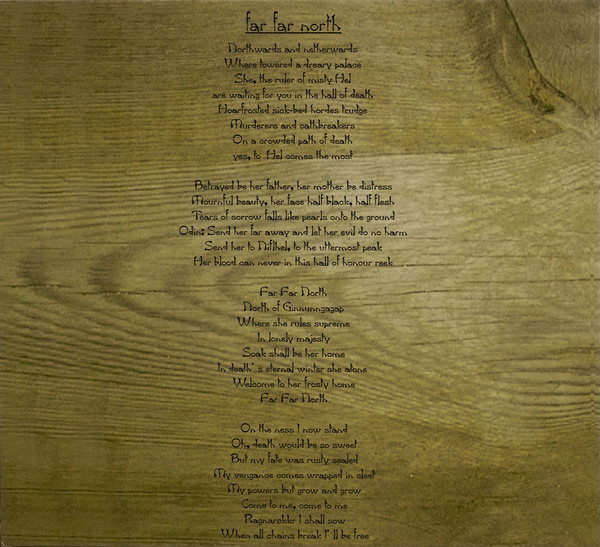 far far north
Northwards and netherwards
Where towered a dreary palace
She, the ruler of misty Hel
are waiting for you in the hall of death
Hoarfrosted sick-bed hordes trudge
Murderers and oathbreakers
On a crowded path of death
yes, to Hel comes the most
Betrayed be her father, her mother be distress
Mournful beauty, her face half black, half flesh
Tears of sorrow falls like pearls onto the ground
Odin: Send her far away and let her evil do no harm
Send her to Niflhel, to the uttermost peak
Her blood can never in this hall of honour reek
Far Far North
North of Ginnunngagap
Where she rules supreme
In lonely majesty
Soak shall be her home
In death's eternal winter she atone
Welcome to her frosty home
Far Far North
On the ness I now stand
Oh, death would be so sweet
But my fate was rusty sealed
My vengance comes wrapped in sleet
My powers but grow and grow
Come to me, come to me
Ragnarokkr I shall sow
When all chains break I'll be free